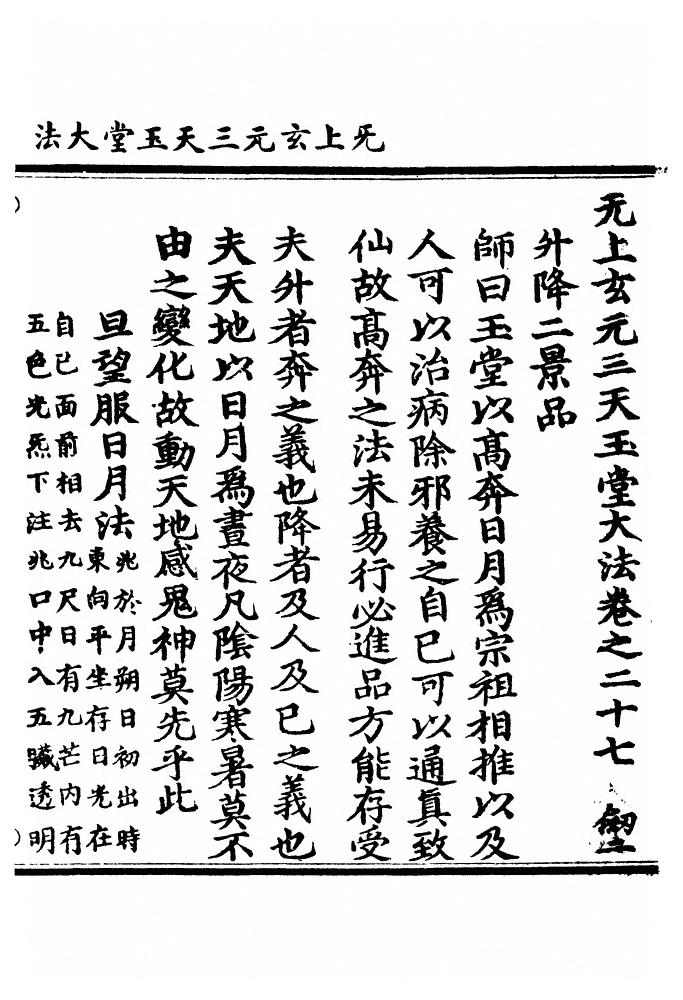 无上玄元三天玉堂大法
无上玄元三天玉堂大法卷之二十七
升降二景品
師曰玉堂以髙奔日月爲宗祖相推以及
人可以治病除邪養之自已可以通眞致
仙故髙奔之法未易行必進品方能存受
夫升者奔之義也降者及人及已之義也
夫天地以日月爲晝夜凡陰陽寒暑莫不
由之變化故動天地感鬼神莫先乎此
旦望服日月法
兆於月朔日初出時
東向平坐存日光在
自已面前相去九尺日有九芒内有
五色光炁下注兆口中入五臟透明